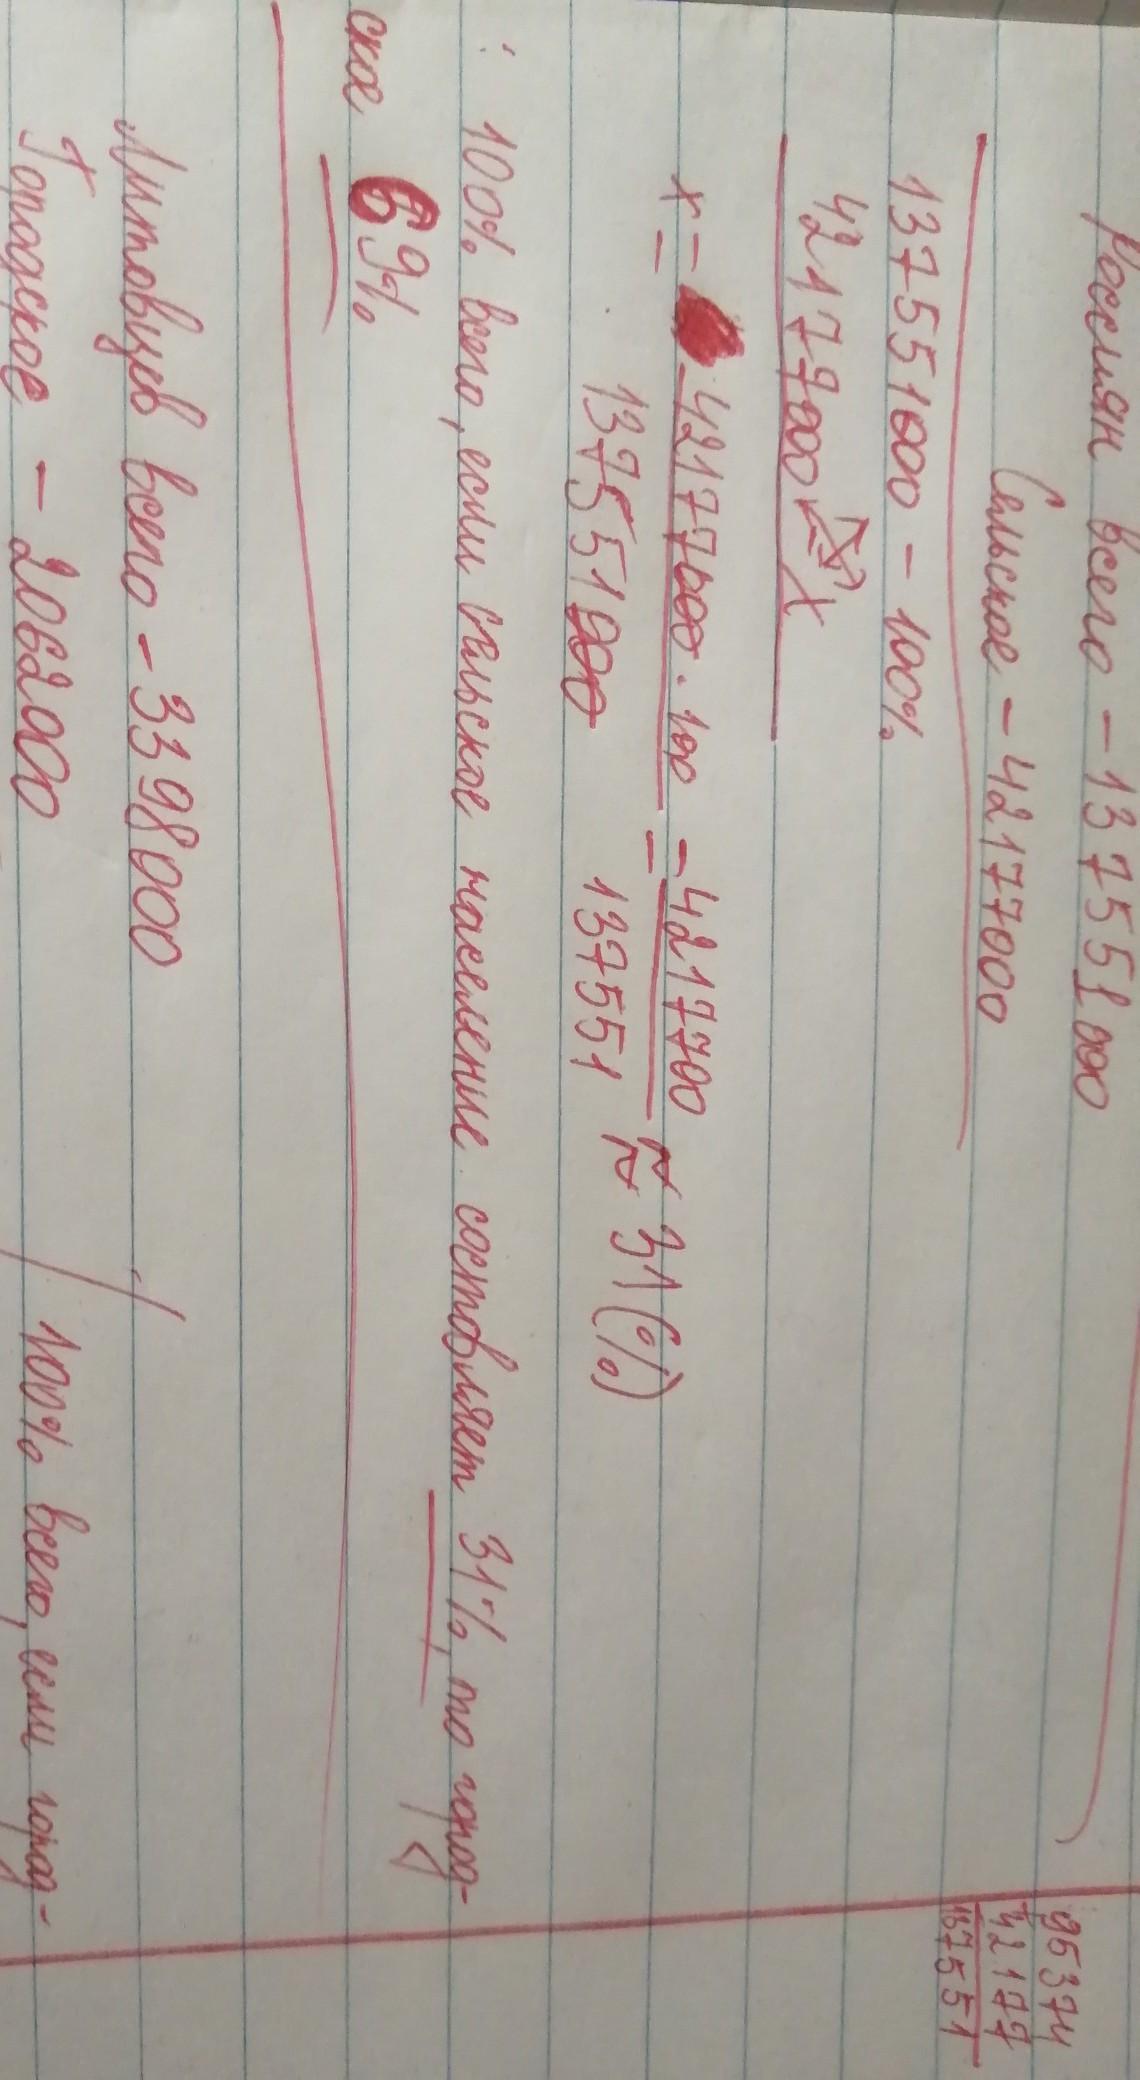 Россиян всего - 137551000
Сельское - 42177000
95374
+42177
137551
137551000 - 100%
42177000 - x
x = 42177000 · 100 = 4217700 ≈ 31 (%)
137551000 137551
: 100% всего, если сельское население составляет 31%, то город-
ское 69%.
Литовцев всего - 3398000
Городское - 2062000
100% всего, если город-